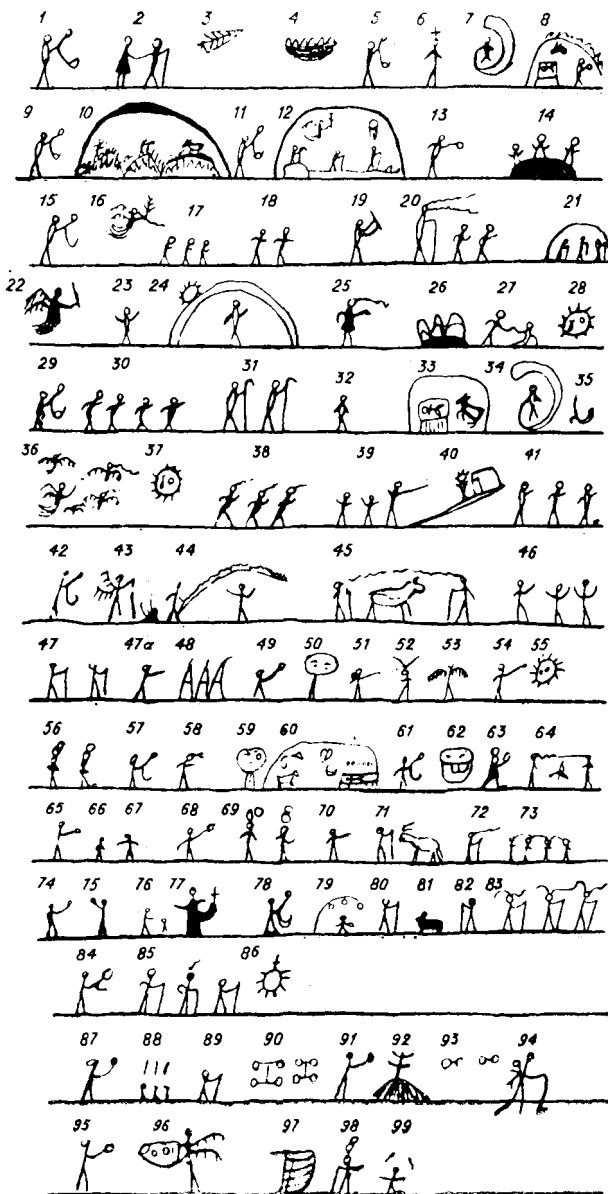 1 2 3 4 5 6 7 8
9 10 11 12 13 14
15 16 17 18 19 20 21
22 23 24 25 26 27 28
29 30 31 32 33 34 35
36 37 38 39 40 41
42 43 44 45 46
47 47а 48 49 50 51 52 53 54 55
56 57 58 59 60 61 62 63 64
65 66 67 68 69 70 71 72 73
74 15 76 77 78 79 80 81 82 83
84 85 86
87 88 89 90 91 92 93 94
95 96 97 98 99